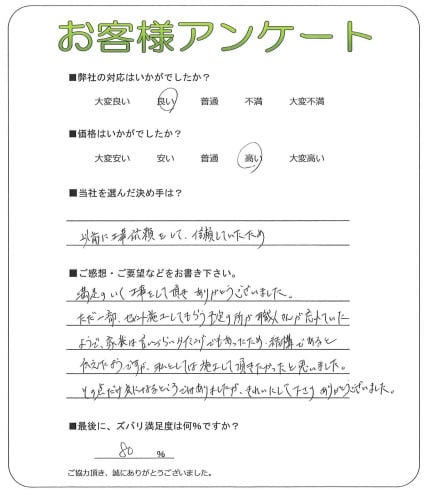 お客様アンケート
■弊社の対応はいかがでしたか?
大変良い 良い 普通 不満 大変不満
■価格はいかがでしたか?
大変安い 安い 普通 高い 大変高い
■当社を選んだ決め手は?
以前に工事依頼をして、信頼していたため
■ご感想・ご要望などをお書き下さい。
満足のいく工事をして頂き ありがとうございました。
ただ一部、施工してもらう予定の所が職人さんが忘れていた
ようで、家族は言いづらいタイミングでもあったため、結構であると
伝えたようですが、私としては施工して頂きたかったと思いました。
その点だけ気になるところではありましたが、きれいにして下さり ありがとうございました。
■最後に、ズバリ満足度は何%ですか?
80 %
ご協力頂き、誠にありがとうございました。